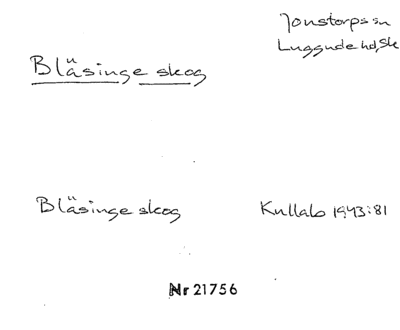 Jonstorps sn
Luggude hd, Sk
Bläsinge skog
Bläsinge skog Kullabo 1943:81
Nr 21756